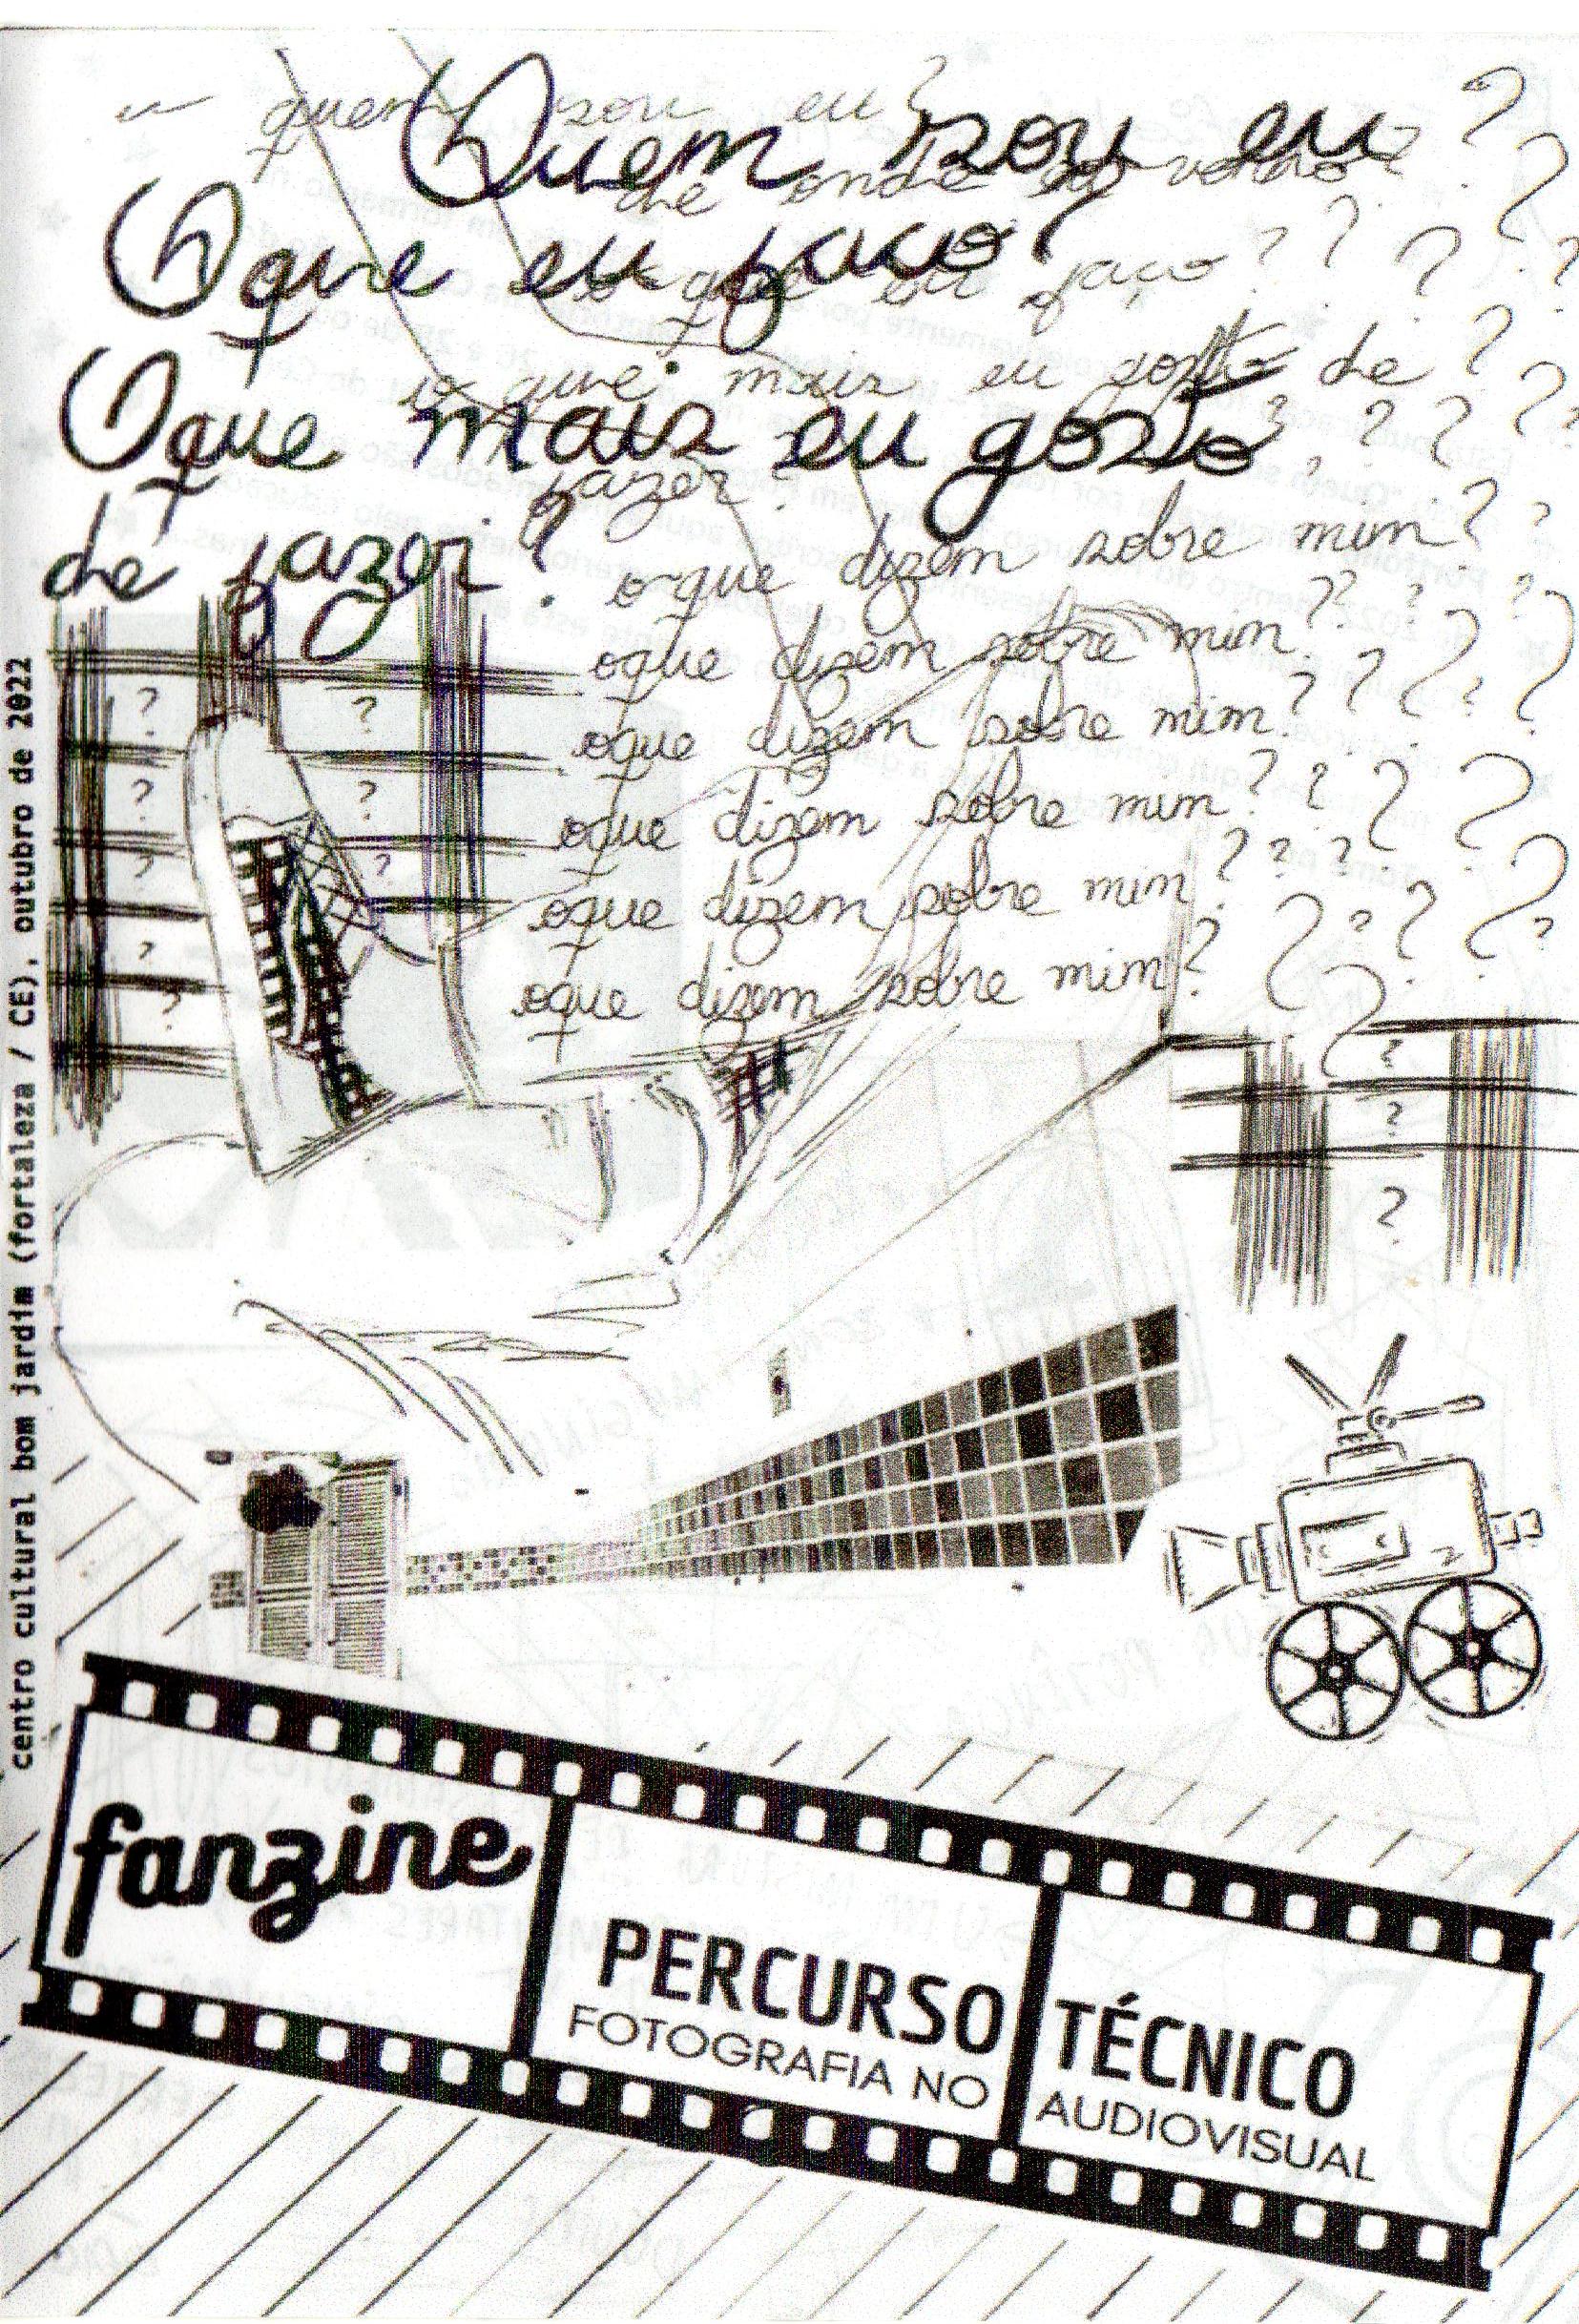 quem sou eu?
Quem sou eu?
de onde eu venho?
O que eu faço?
o que eu faço???
o que mais eu gosto de
O que mais eu gosto
fazer?
de fazer?
o que dizem sobre mim?
o que dizem sobre mim??
o que dizem sobre mim?
o que dizem sobre mim?
o que dizem sobre mim?
o que dizem sobre mim?
centro cultural bom jardim (fortaleza / CE), outubro de 2022
fanzine
PERCURSO TÉCNICO
FOTOGRAFIA NO AUDIOVISUAL